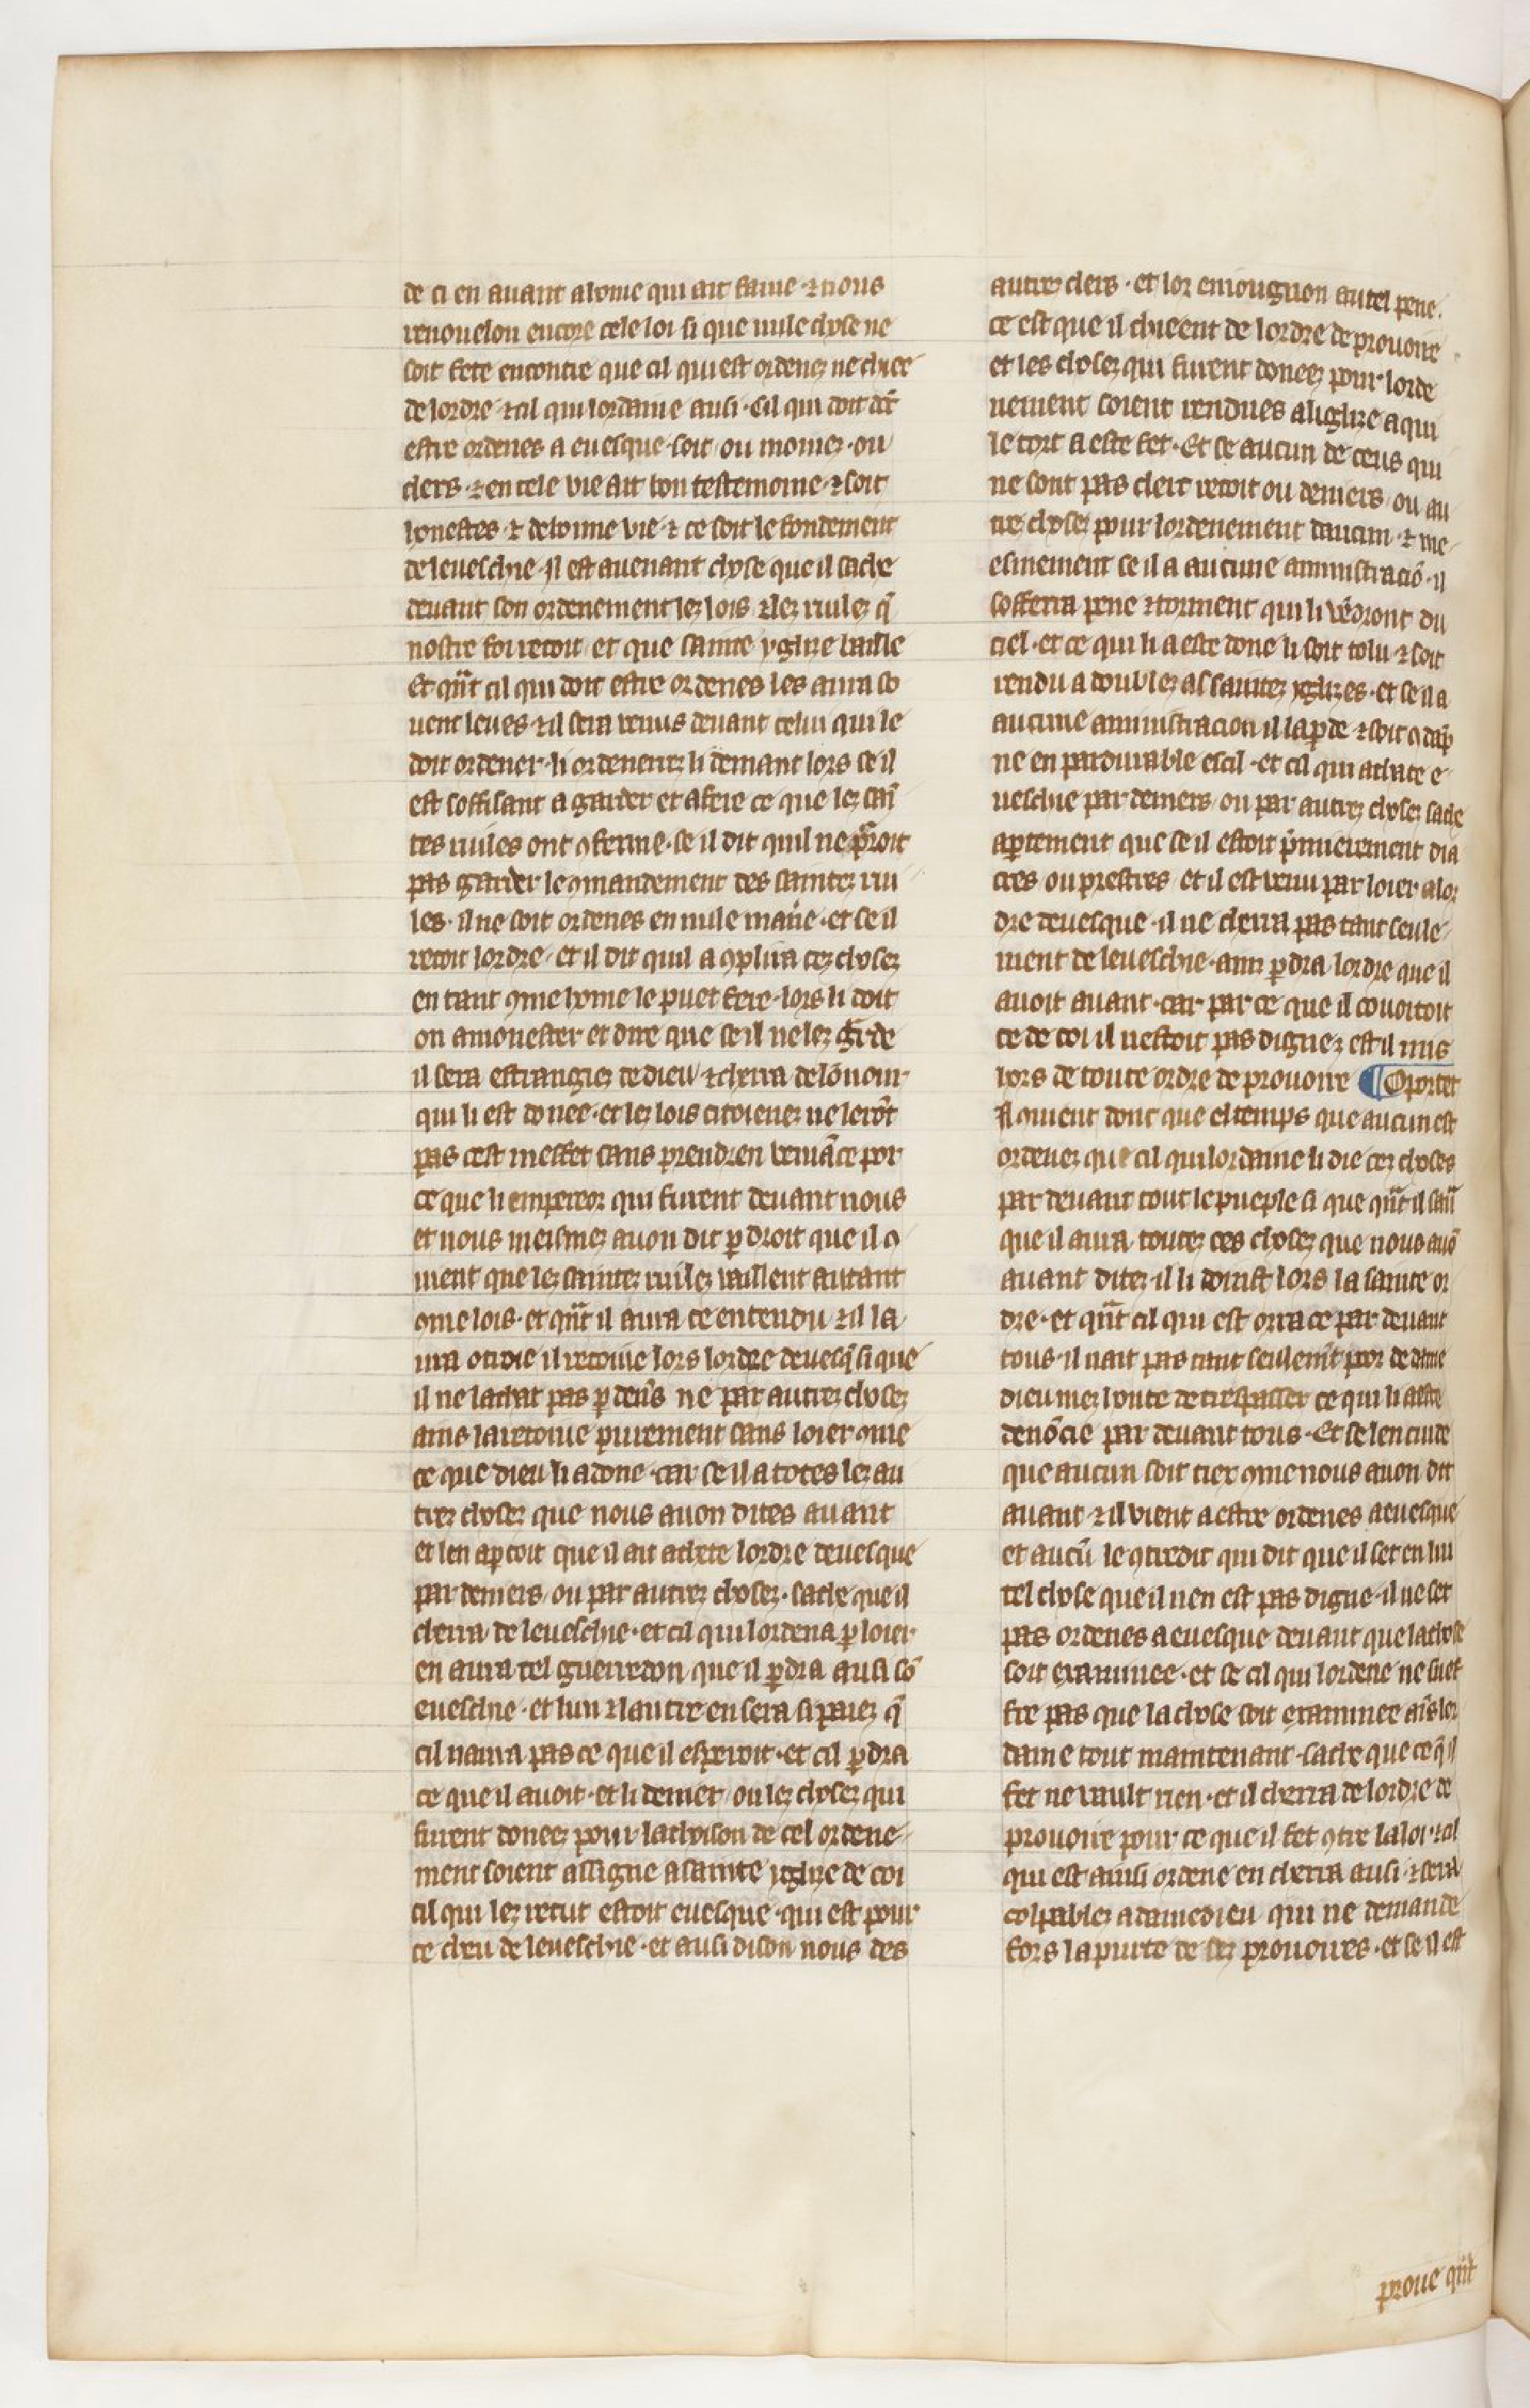 de ci en auant a home qui ait fame · ⁊ nous
renouelon encore cele loi si que nule chose ne
soit fete encontre que cil qui est ordenez ne chiee
de lordre ⁊ cil qui lordaine ausi · Cil qui doit dc̄
estre ordenes a euesque · soit ou moines · ou
clers · ⁊ en cele vie ait bon testemoine · ⁊ soit
honestes ⁊ de bonne vie · ⁊ ce soit le fondement
de leueschie · Il est auenant chose que il sache
deuant son ordenement lez lois ⁊ lez riulez q̄
nostre foi recoit et que sainte yglize baille
Et qn̄t cil qui doit estre ordenes les aura so
uent leues ⁊ il sera venus deuant celui qui le
doit ordener · li ordenerrez li demant lors se il
est soffisant a garder et a fere ce que lez sain̄
tes riules ont ꝯferme · se il dit quil ne porroit
pas garder le ꝯmandement des saintez riu
les · il ne soit ordenes en nule manie᷑ · et se il
recoit lordre · et il dit quil a ꝯplira cez chosez
en tant ꝯme home le puet fere · lors li doit
on amonester et dire que se il ne lez garde
il sera estrangiez de dieu ⁊ cherra de lōnour
qui li est donee · et lez lois citoienez ne lerōt
pas cest meffet sans prendre n veniāce por
ce que li empereor qui furent deuant nous
et nous meismez auon dit ꝑ droit que il ꝯ
uient que lez saintez riulez vaillent autant
ꝯme lois · et qn̄t il aura ce entendu ⁊ il la
ura otroie il recoiue lors lordre deuesq̄ si que
il ne lachat pas ꝑ den̄s ne par autrez chosez
ains la recoiue purement sans loier ꝯme
ce que dieu li a done · car se il a totes lez au
trez chosez que nous auon dites auant
et len aꝑcoit que il ait achete lordre deuesque
par deniers / ou par autrez chosez · sache que il
cherra de leueschie · et cil qui lordena ꝑ loier
en aura tel guerredon que il ꝑdra ausi sō
eueschie · et lun ⁊ lautre en sera si paiez q̄
cil naura pas ce que il esperoit · et cil ꝑdra
ce que il auoit · et li denier / ou lez chosez qui
furent donees pour lachoison de cel ordene
ment soient assigne a sainte yglize de coi
cil qui lez recut estoit euesque · qui est pour
ce cheu de leueschie · et ausi dison nous des
autrez clers · et lor eniougnon autel pene ·
ce est que il chieent de lordre de prouoire
et les chosez qui furent donees pour lorde
nement soient rendues a liglize a qui
le tort a este fet · Et se aucun de ceus qui
ne sont pas clerc recoit ou deniers / ou au
tre chosez pour lordenement daucun · ⁊ me
esmement se il a aucune aministraciō · il
sofferra pene ⁊ torment qui li vēdront du
ciel · et ce qui li a este done li soit tolu ⁊ soit
rendu a doublez as saintez yglizes · et se il a
aucune aministracion il la ꝑde ⁊ soit ꝯdap̄
ne en pardurable escil · et cil qui achate e
ueschie par deniers / ou par autrez chosez sache
aꝑtement que se il estoit p̄mierement dia
cres ou prestres et il est venu par loier a lor
dre deuesque · il ne cherra pas tant seule
ment de leueschie · ainz ꝑdra lordre que il
auoit auant · car par ce que il couoitoit
ce de coi il nestoit pas dignez est il mis
hors de toute ordre de prouoire ¶ Oportet
Il ꝯuient donc que el temps que aucun est
ordenez que cil qui lordaine li die cez choses
par deuant tout le pueple si que qn̄t il saū
que il aura toutez ces chosez que nous auō
auant ditez · il li doinst lors la sainte or
dre · et qn̄t cil qui est orra ce par deuant
tous · il nait pas tant seulem̄t poor de dame
dieu mez honte de trespasser ce qui li a este
denōcie par deuant tous · Et se len cuide
que aucun soit tiex ꝯme nous auon dit
auant ⁊ il vient a estre ordenes a euesque
et aucū le ꝯtredit qui dit que il set en lui
tel chose que il nen est pas digne · il ne set
pas ordenes a euesque deuant que la chose
soit examinee · et se cil qui lordene ne suef
fre pas que la chose soit examinee ais̄ lor
daine tout maintenant · sache que ce q̄ il
fet ne vault rien · et il cherra de lordre de
prouoire pour ce que il fet ꝯtre la loi · ⁊ cil
qui est ainsi ordene en cherra ausi · ⁊ sera
colpablez a damedieu qui ne demande
fors la purte de sez prouoires · et se il est
proue qn̄t